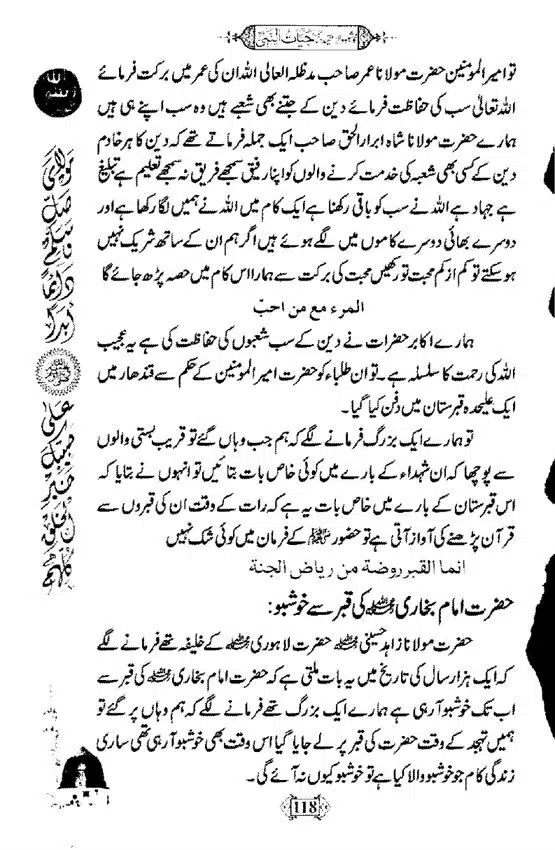 حیات النبی
تو امیر المومنین حضرت مولانا عمر صاحب مدظلہ العالی اللہ ان کی عمر میں برکت فرمائے
اللہ تعالیٰ سب کی حفاظت فرمائے دین کے جتنے بھی شعبے ہیں وہ سب اپنے ہی ہیں
ہمارے حضرت مولانا شاہ ابرار الحق صاحب ایک جملہ فرماتے تھے کہ دین کا ہر خادم
دین کے کسی بھی شعبہ کی خدمت کرنے والوں کو اپنا رفیق سمجھے فریق نہ سمجھے تعلیم ہے تبلیغ
ہے جہاد ہے اللہ نے سب کو باقی رکھنا ہے ایک کام میں اللہ نے ہمیں لگا رکھا ہے اور
دوسرے بھائی دوسرے کاموں میں لگے ہوئے ہیں اگر ہم ان کے ساتھ شریک نہیں
ہو سکتے تو کم از کم محبت تو رکھیں محبت کی برکت سے ہمارا اس کام میں حصہ پڑھ جائے گا
المرء مع من احبّ
ہمارے اکابر حضرات نے دین کے سب شعبوں کی حفاظت کی ہے یہ عجیب
اللہ کی رحمت کا سلسلہ ہے۔ تو ان طلباء کو حضرت امیر المومنین کے حکم سے قندھار میں
ایک علیحدہ قبرستان میں دفن کیا گیا۔
تو ہمارے ایک بزرگ فرمانے لگے کہ ہم جب وہاں گئے تو قریب بستی والوں
سے پوچھا کہ ان شہداء کے بارے میں کوئی خاص بات بتائیں تو انہوں نے بتایا کہ
اس قبرستان کے بارے میں خاص بات یہ ہے کہ رات کے وقت ان کی قبروں سے
قرآن پڑھنے کی آواز آتی ہے تو حضور ﷺ کے فرمان میں کوئی شک نہیں
انما القبر روضة من رياض الجنة
حضرت امام بخاری رحمۃ اللہ علیہ کی قبر سے خوشبو:
حضرت مولانا زاہد حسینی رحمۃ اللہ علیہ حضرت لاہوری رحمۃ اللہ علیہ کے خلیفہ تھے فرمانے لگے
کہ ایک ہزار سال کی تاریخ میں یہ بات ملتی ہے کہ حضرت امام بخاری رحمۃ اللہ علیہ کی قبر سے
اب تک خوشبو آ رہی ہے ہمارے ایک بزرگ تھے فرمانے لگے کہ ہم وہاں پر گئے تو
ہمیں تہجد کے وقت حضرت کی قبر پر لے جایا گیا اس وقت بھی خوشبو آ رہی تھی ساری
زندگی کام جو خوشبو والا کیا ہے تو خوشبو کیوں نہ آئے گی۔
118
مولای صل وسلم دائما ابدا
علی حبیبک خیر الخلق کلهم